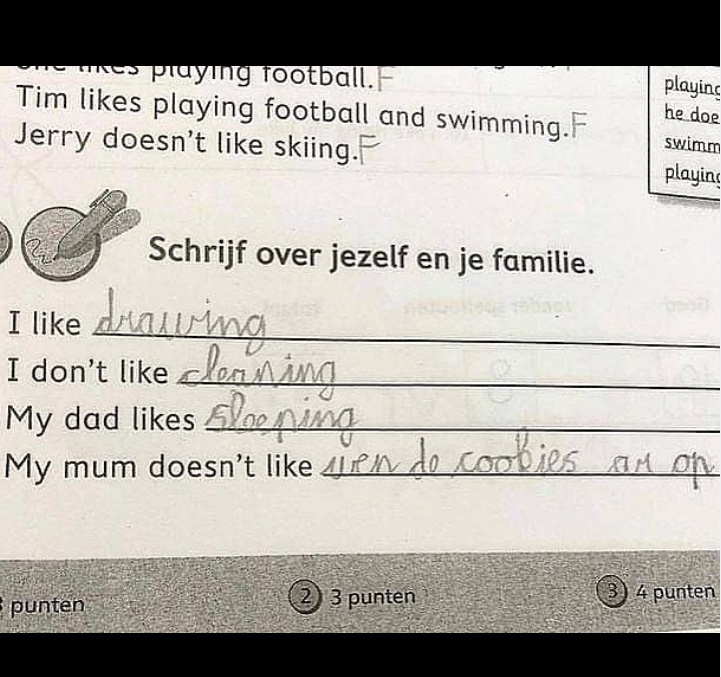 She likes playing football. F
playing
Tim likes playing football and swimming. F
he doe
Jerry doesn't like skiing. F
swimm
playing
Schrijf over jezelf en je familie.
I like drawing
I don't like cleaning
My dad likes sleeping
My mum doesn't like wen de cookies ar op
punten
2 3 punten
3 4 punten